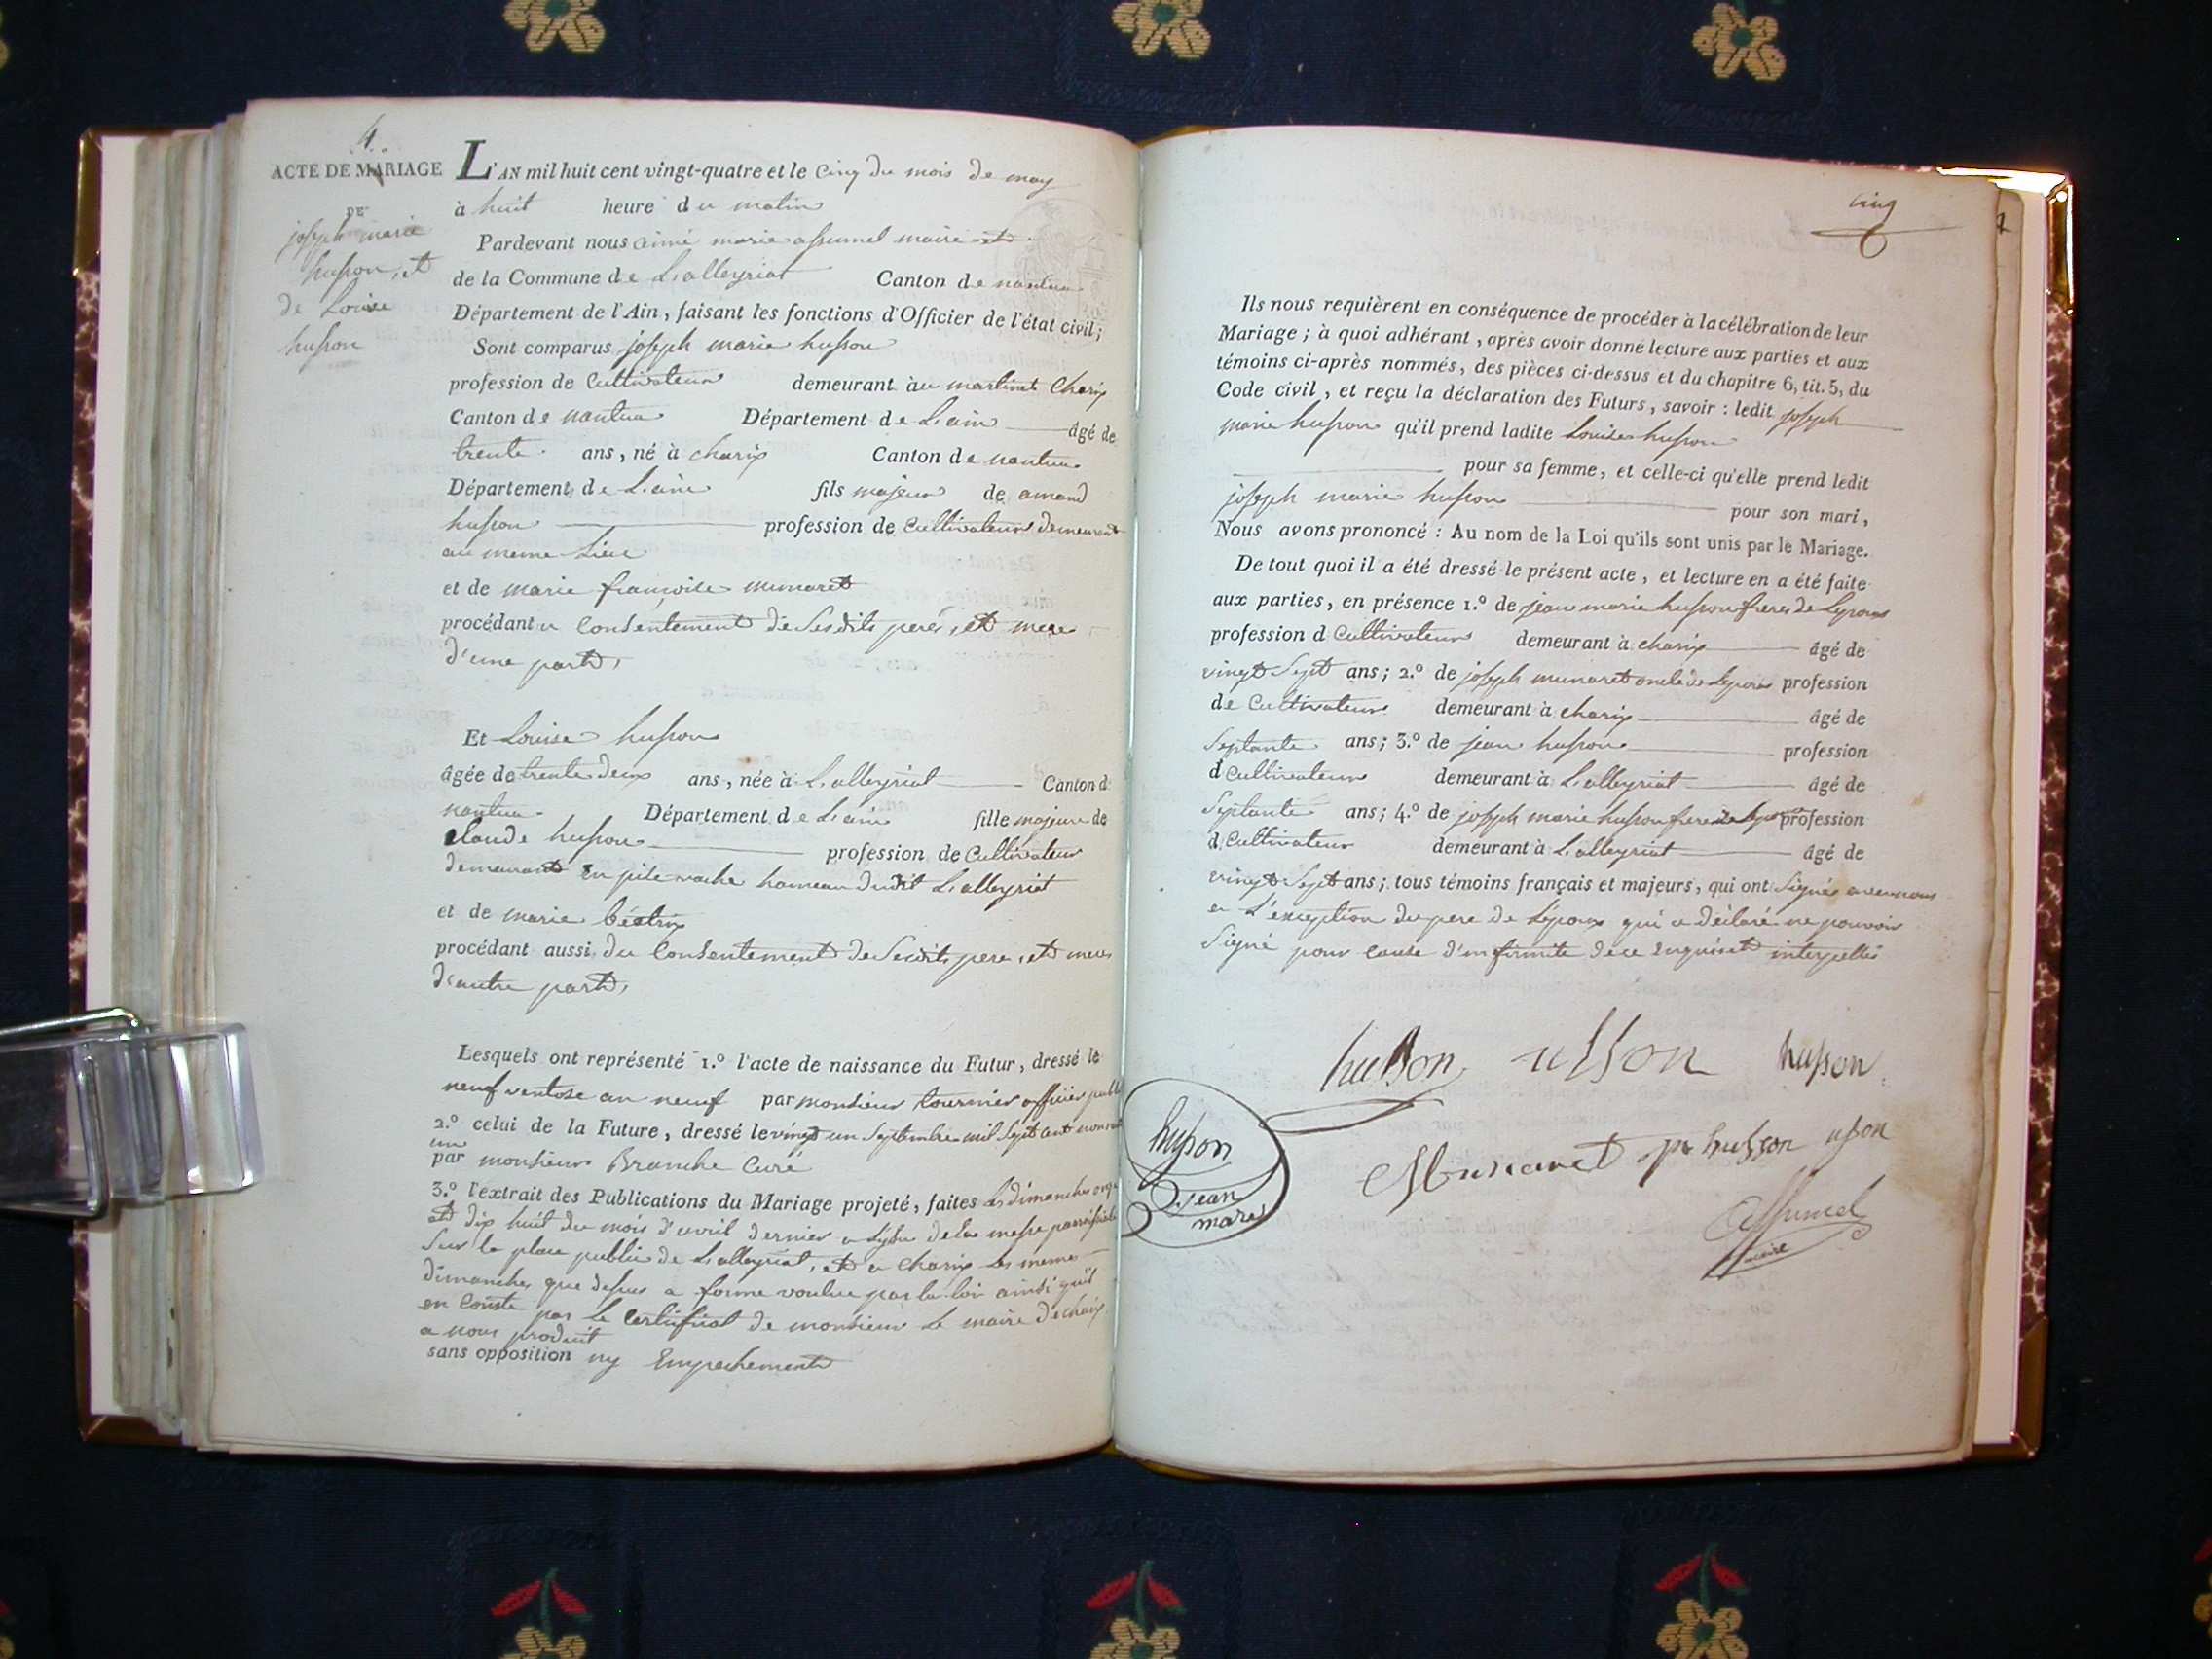 4.
ACTE DE MARIAGE
DE
joseph marie
husson, et
de Louise
husson
L'AN mil huit cent vingt-quatre et le cinq du mois de may
à huit heure du matin
Pardevant nous aimé marie assumel maire
de la Commune de Lalleyriat Canton de nantua
Département de l'Ain, faisant les fonctions d'Officier de l'état civil;
Sont comparus joseph marie husson
profession de Cultivateur demeurant àu martinet Charix
Canton de nantua Département de L'ain âgé de
trente ans, né à charix Canton de nantua
Département de L'ain fils majeur de amand
husson profession de Cultivateur demeurant
au meme Lieu
et de marie françoise munaret
procédant u Consentement de Sesdits peres, et mere
d'une part,
Et Louise husson
âgée de trente deux ans, née à Lalleyriat Canton d
nantua Département de L'ain fille majeure de
Claude husson profession de Cultivateur
demeurant En pile vache hameau dudit Lalleyriat
et de marie béatrix
procédant aussi du Consentement de Sesdits pere, et mere
d'autre part,
Lesquels ont représenté 1.º l'acte de naissance du Futur, dressé le
neuf ventose an neuf par monsieur tournier officier publi
2.º celui de la Future, dressé le vingt un Septembre mil Sept cent
un
par monsieur Branche Curé
3.º l'extrait des Publications du Mariage projeté, faites Les dimanches onze
et dix huit du mois d'avril dernier a Lyssu de la messe paroissiale
Sur la place public de Lalleyriat, et a Charix Les meme
dimanches que dessus a forme voulue par la loi ainsi qu'il
en Conste par Le Certificat de monsieur Le maire de charix
a nous produit
sans opposition ny Empechement
cinq
Ils nous requièrent en conséquence de procéder à la célébration de leur
Mariage; à quoi adhérant, après avoir donné lecture aux parties et aux
témoins ci-après nommés, des pièces ci-dessus et du chapitre 6, tit. 5, du
Code civil, et reçu la déclaration des Futurs, savoir: ledit joseph
marie husson qu'il prend ladite Louise husson
pour sa femme, et celle-ci qu'elle prend ledit
joseph marie husson pour son mari,
Nous avons prononcé: Au nom de la Loi qu'ils sont unis par le Mariage.
De tout quoi il a été dressé le présent acte, et lecture en a été faite
aux parties, en présence 1.º de jean marie husson frere de Lepoux
profession d Cultivateur demeurant à charix âgé de
vingt Sept ans; 2.º de joseph munaret oncle de Lepoux profession
de Cultivateur demeurant à charix âgé de
Septante ans; 3.º de jean husson profession
d Cultivateur demeurant à Lalleyriat âgé de
Septante ans; 4.º de joseph marie husson frere de profession
d Cultivateur demeurant à Lalleyriat âgé de
vingt Sept ans; tous témoins français et majeurs, qui ont Signés avec nous
a L'exception du pere de Lépoux qui a déclaré ne pouvoir
Signé pour cause d'infirmite de ce Enquis et interpellé
husson usson husson
husson
jean
marei
Munaret husson uson
assumel
maire